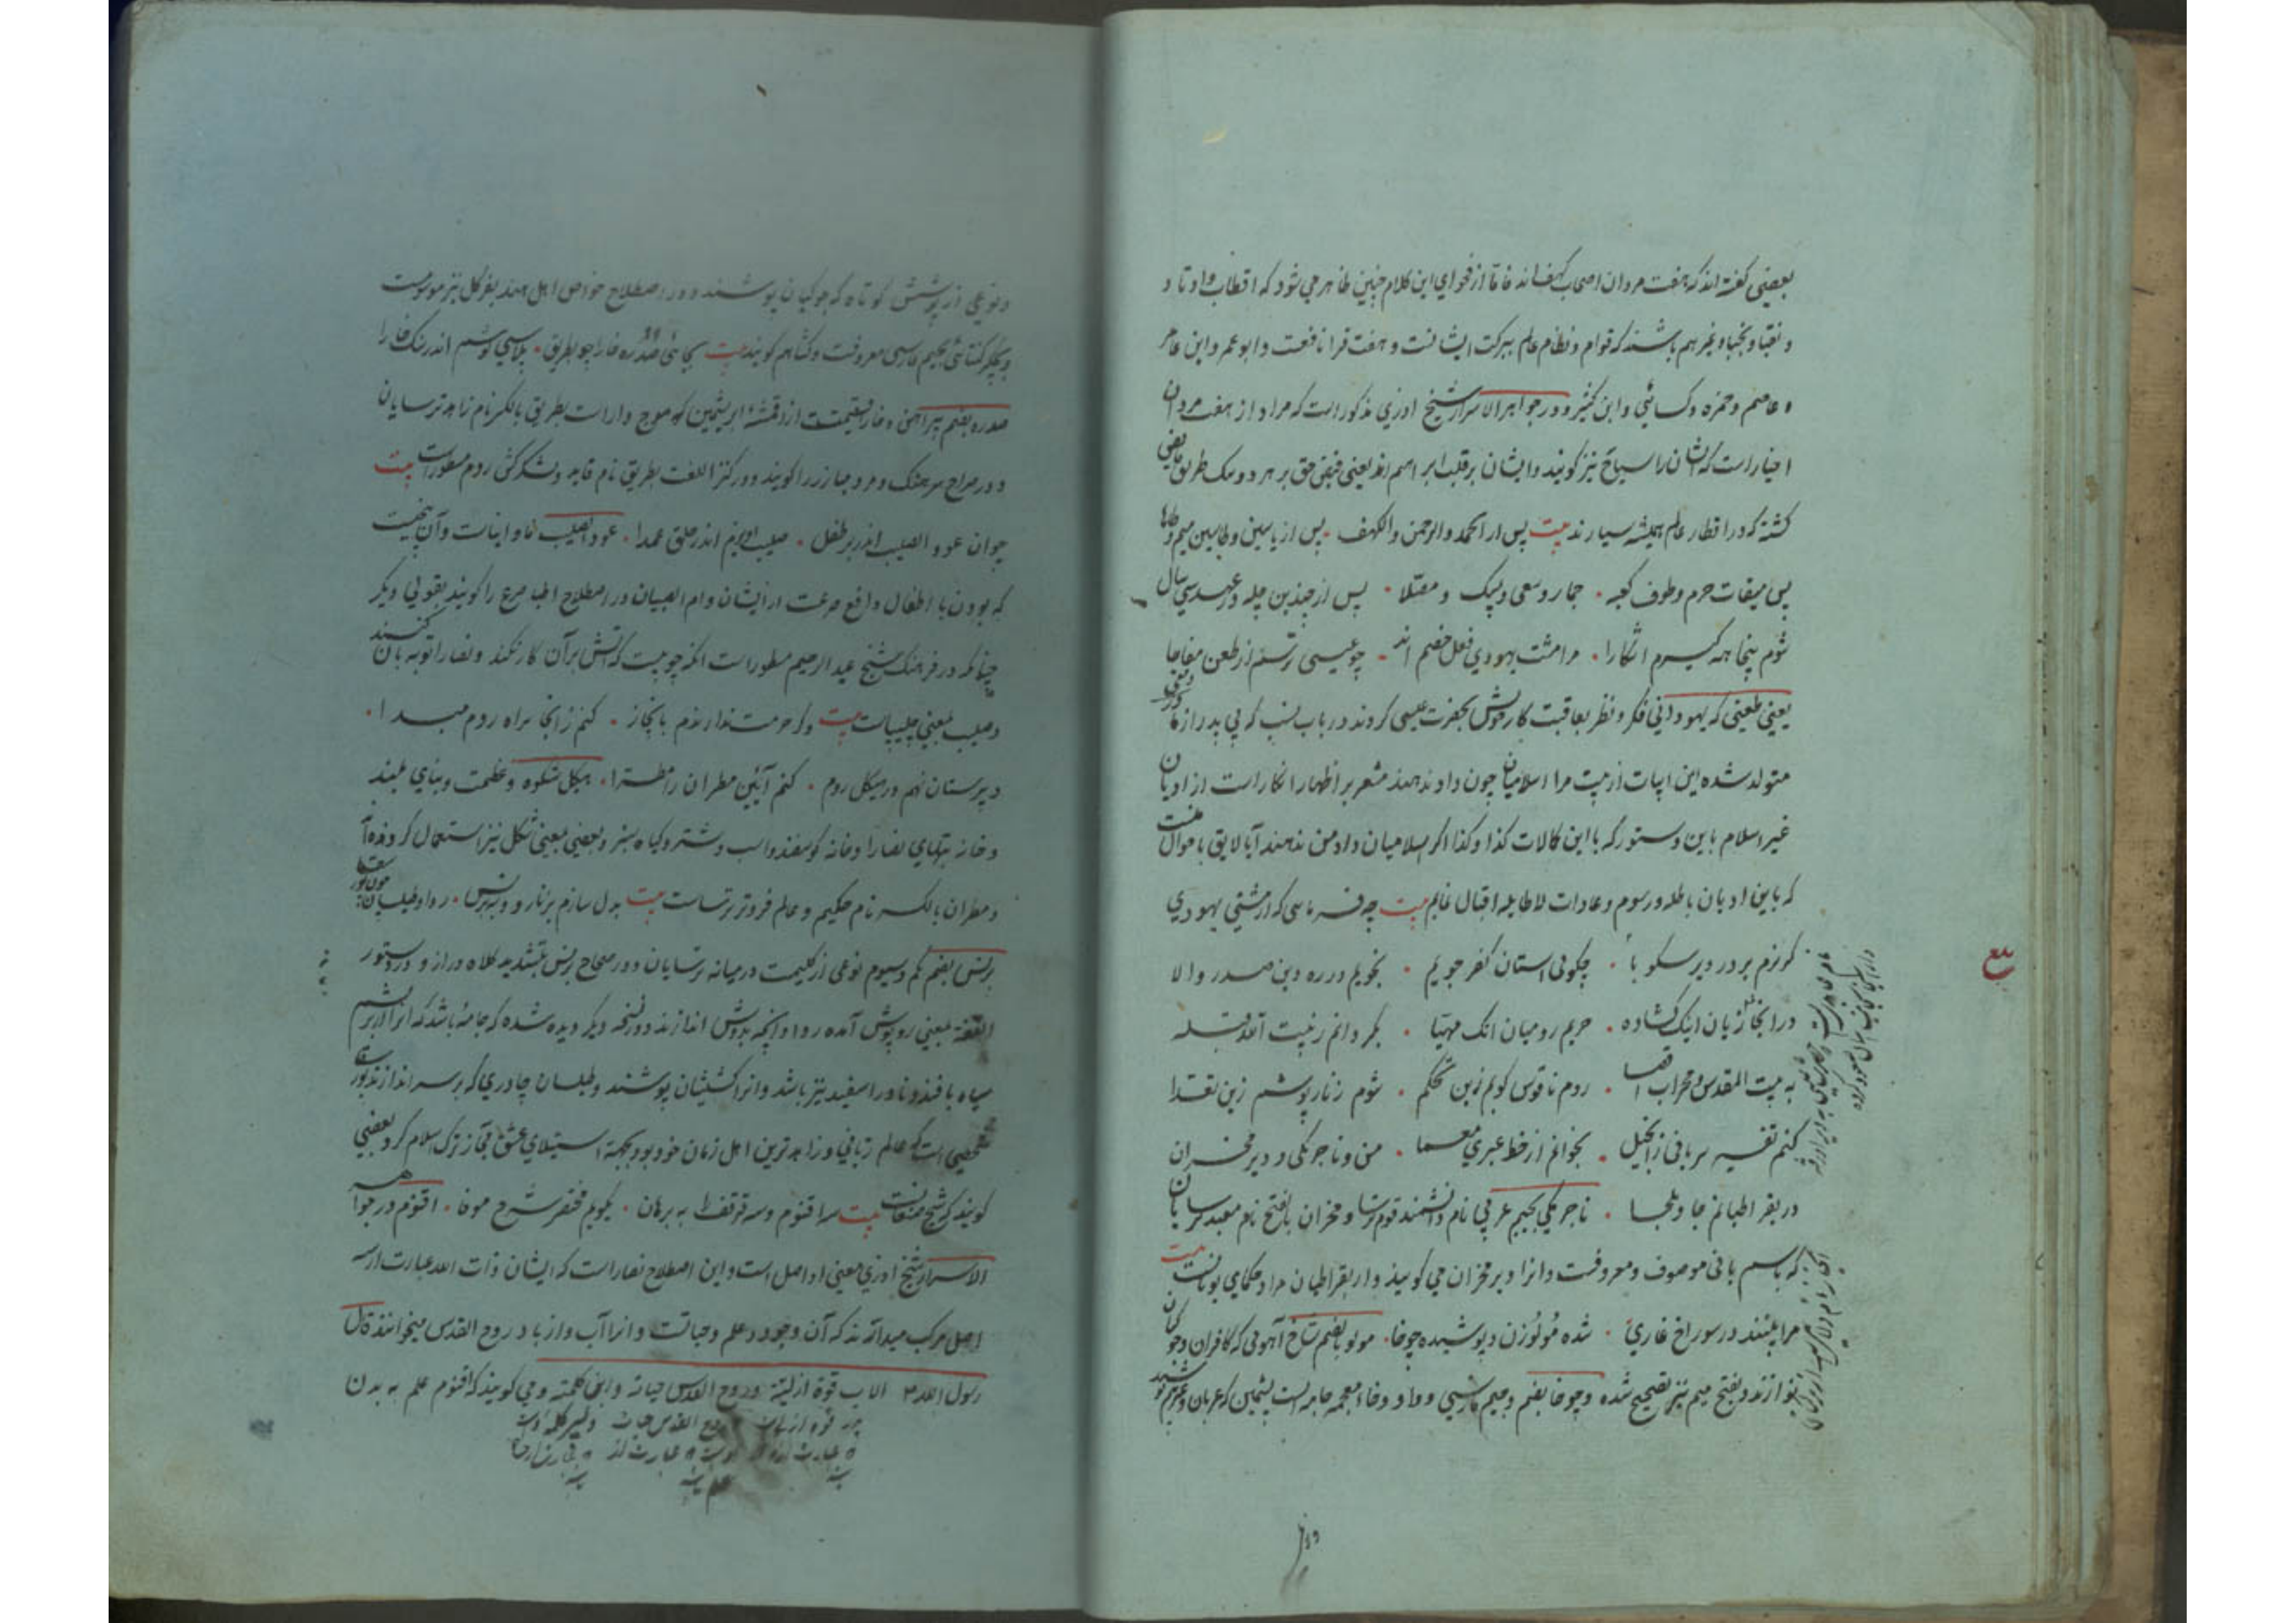 بعضی گفته اند که هفت مردان اصحاب کهف اند فاما از فحوای این کلام چنین ظاهر می شود که اقطاب و اوتاد و
و نقبا و نجبا و غیرهم باشند که قوام و نظام عالم ببرکت ایشانست و هفت قرا نافعست و ابو عمر و ابن عامر
و عاصم و حمزه و کسائی و ابن کثیر و در جواهر الاسرار شیخ اذری مذکور است که مراد از هفت مردان
اخیار است که ایشان را سیاح نیز گویند و ایشان بر قلب ابراهیم اند یعنی فیض حق بر هر دو بیک طریق فایض
گشته که در اقطار عالم همیشه سیارند بیت پس از الحمد و الرحمن و الکهف . پس از یاسین و طاسین میم و طاها
پس میقات حرم و طوف کعبه . جمار و سعی و لبیک و مصلا . پس از چندین چله در عهد سی سال
شوم پنجاهه گیرم آشکارا . مرا مشت یهودی فعل خصم اند . چو عیسی ترسم از طعن مفاجا
یعنی طعنی که یهود انی فکر و نظر بعاقبت کار خویش بحضرت عیسی کردند در باب نسب که بی پدر از
متولد شده این ابیات از بیت مرا اسلامیان چون داد ندهند مشعر بر اظهار انکار است از ادیان
غیر اسلام باین دستور که با این کمالات کذا و کذا اگر اسلامیان داد من ندهند آیا لایق باحوال منست
که باین ادیان باطله و رسوم و عادات لاطایله اقبال نمایم بیت چه فرمائی که از مشتی یهودی
گریزم بر در دیر سکوبا . چگوئی استان کفر جویم . نجویم در ره دین صدر والا
در ابخازیان اینک گشاده . حریم رومیان انک مهیا . بگردانم ز بیت الله قبله
به بیت المقدس و محراب اقصا . روم ناقوس بوسم زین تحکم . شوم زنار پوشم زین تعدا
کنم تفسیر سریانی ز انجیل . بخوانم از خط عبری معما . من و ناجرمکی و دیر مخران
در بقراطیانم جا و ملجا . ناجرمکی بجیم عربی نام دانشمند قوم ترسا و مخران بالفتح نام معبد ترسایان
که باسم بانی موصوف و معروفست و انرا دیر مخران می گویند و از بقراطیان مراد حکمای یونانست بیت
مرا بینند در سوراخ غاری . شده مولوزن و پوشیده چوخا . مولو بضم شاخ آهوئی که کافران و جوکیان
بنوازند و بفتح میم نیز تصحیح شده و چوخا بضم و جیم فارسی و واو و خاء معجمه جامه ایست پشمین که
و نوعی از پوشش کوتاه که جوکیان پوشند و در اصطلاح خواص اهل هند بفرگل نیز موسومست
معروفست و کشا هم گویند بیت بجای صدره خارا چو بطریق . پلاسی پوشم اندر سنگ خارا
صدره بضم پیراهن و خارا قسمیست از اقمشه ابریشمین که موج دار است بطریق بالکسر نام زاهد ترسایان
و در صراح سرهنگ و مرد مبارز را گویند و در کنز اللغت بطریق نام قاید و لشکرکش روم مسطور است بیت
چو آن عود الصلیب اندر بر طفل . صلیب آویزم اندر حلق عمدا . عود الصلیب فاوانیاست و آن
که بودن با اطفال دافع صرعست از ایشان و ام الصبیان در اصطلاح اطبا صرع را گویند بقولی دیگر
چنانکه در فرهنگ شیخ عبد الرحیم مسطور است انکه چوبیست که آتش بر آن کار نکند و نصارا توبه بآن کنند
و صلیب بمعنی چلیپاست بیت وگر حرمت ندارندم بابخاز . کنم زانجا براه روم مبدا .
دبیرستان نهم در هیکل روم . کنم آئین مطران را مطرا . هیکل شکوه و عظمت و بنای بلند
و خانه بتهای نصارا و خانه گوسفند و اسب و شتر و گیاه سبز و بعضی بمعنی شکل نیز استعمال کرده اند
و مطران بالکسر نام حکیم و عالم فروتر ترساست بیت بدل سازم بزنار و ببرنس . ردا و طیلسان چون پور سقا
برنس بضم یکم و سیوم نوعی از گلیمست در میانه ترسایان و در صحاح برنس بتشدید کلاه دراز و در دستور
اللغة بمعنی روپوش آمده ردا و انچه بدوش اندازند و در نسخه دیگر دیده شده که جامهٔ باشد که انرا از ابریشم
سیاه بافند و نادرا سفید نیز باشد و انرا کشیشان پوشند و طیلسان چادری که بر سر اندازند پور سقا
شخصی است که عالم ربانی و زاهدترین اهل زمان خود بود بجهة استیلای عشق مجازی ترک اسلام کرد بعضی
گویند که شیخ صنعانست بیت سه اقنوم و سه قرقف را به برهان . بگویم مختصر شرح موفا . اقنوم در جواهر
الاسرار شیخ اذری بمعنی اواصل است و این اصطلاح نصارا است که ایشان ذات الله عبارت از سه
اصل مرکب میدانند که آن وجود و علم و حیاتست و انرا آب و ابن و روح القدس میخوانند قال
رسول الله الاب قوة ازلیة و روح القدس حیاته و ابنی کلمته و می گویند که اقنوم علم به بدن